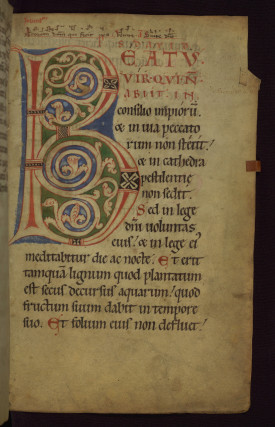 BEATUS
VIR QUI NON
ABIIT IN
consilio impioru͞.
& in uia peccato
rum non stetit!
& in cathedra
pestilentie
non sedit.
Sed in lege
dn͞i uoluntas
eius! & in lege ei᷒
meditabitur die ac nocte. Et erit
tamquā lignum quod plantatum
est secus decursus aquarum! quod
fructum suum dabit in tempore
suo. Et folium eius non defluet!